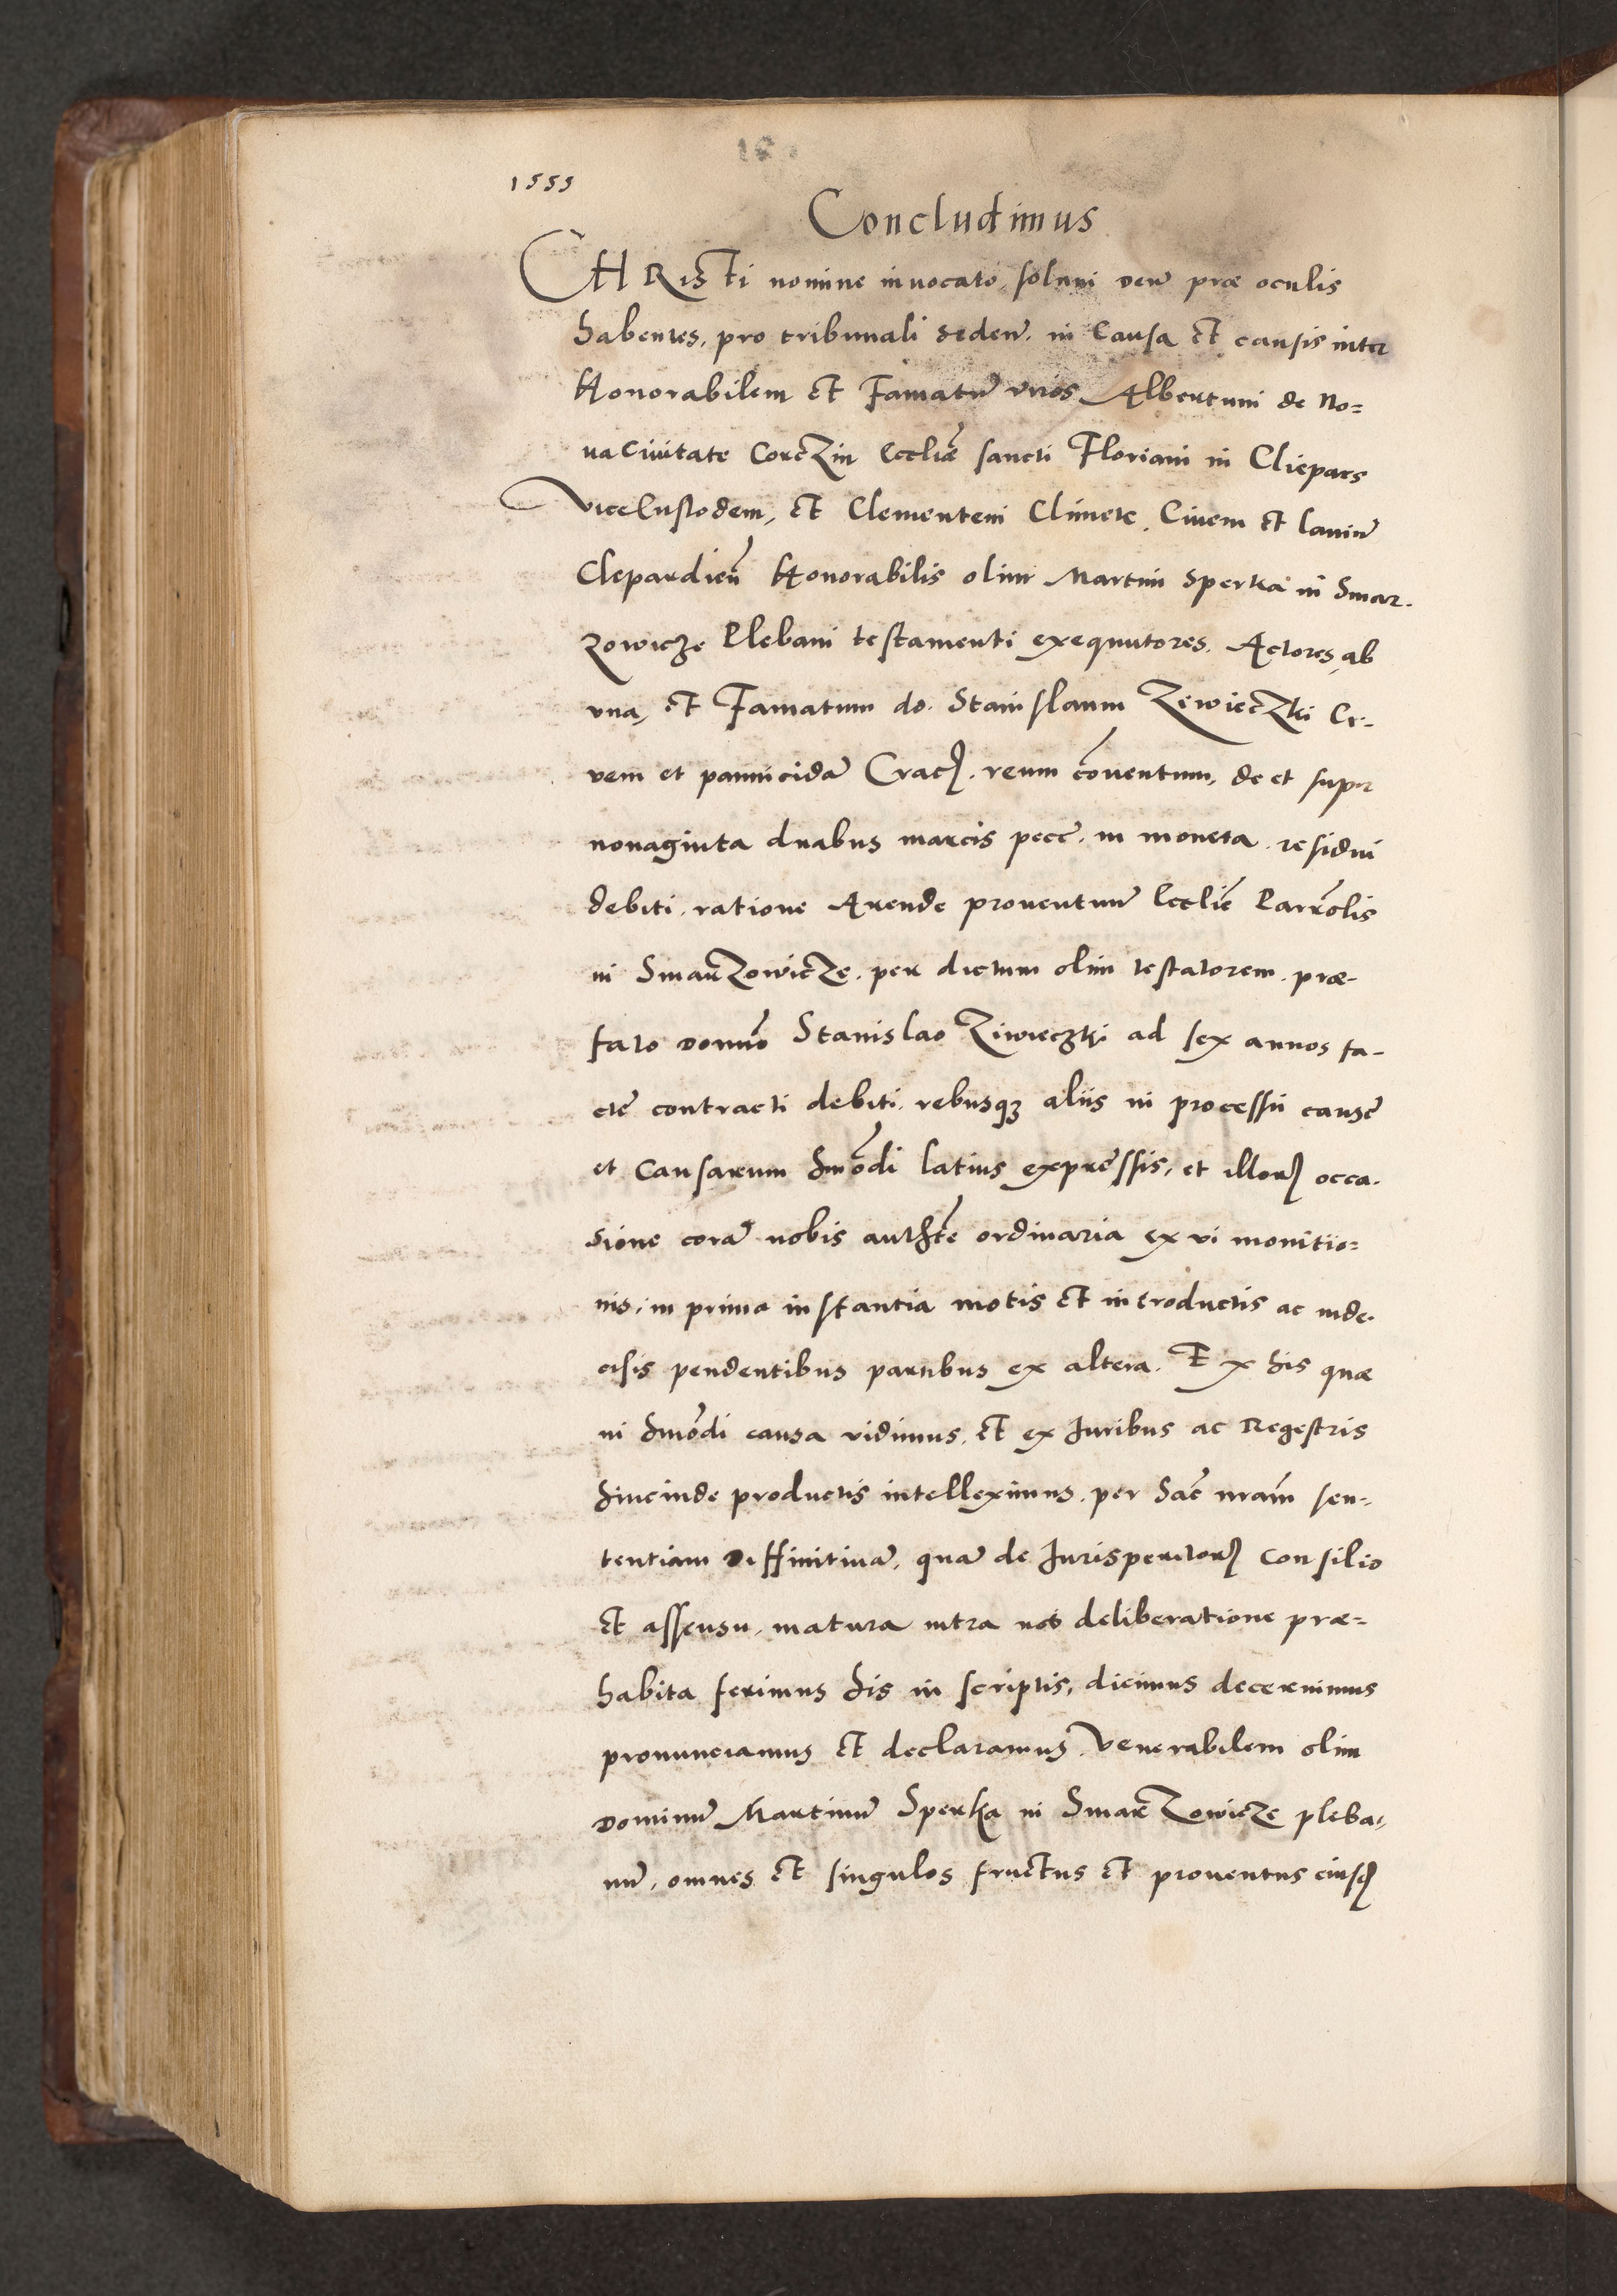 1555
Concludimus
CHRisti nomine inuocato, solum deū præ oculis
habentes, pro tribunali seden̄. in Causa et causis inter
Honorabilem et Famatū viros Albertum de No=
ua Ciuitate Corczin Eccliæ sancti Floriani in Clepars
ViceCustodem, et Clementem Climek, Ciuem et laniū
Clepardieñ Honorabilis olim Martini Sperka in Smar-
zowicze Plebani testamenti exequutores. Actores, ab
vna, et Famatum do. Stanislaum Zewieczki Ci-
vem et pannicidā Crac. reum cōuentum, de et super
nonaginta duabus marcis pecc. in moneta. residui
debiti, ratione Arende prouentuū Ecclię Parrōlis
in Smarzowicze. per dictum olim testatorem. præ-
fato domīo Stanislao Ziwieczki ad sex annos fa-
ctę contracti debiti, rebusq; aliis in processu causę
et Causarum hmōdi latius expressis, et illor occa-
sione corā nobis authte ordinaria ex vi monitio=
nis, in prima instantia motis et introductis ac inde-
cisis pendentibus partibus ex altera. Ex his quæ
in hmōdi causa vidimus, et ex Juribus ac Regestris
hincinde productis intelleximus, per hāc nrām sen-
tentiam diffinitiuā, quā de Jurisperitor Consilio
et assensu, matura intra nos deliberatione præ=
habita ferimus his in scriptis, dicimus decernimus
pronunciamus et declaramus, Venerabilem olim
dominū Martinū Sperka in Smarzowicze pleba-
nū, omnes et singulos fructus et prouentus eiusd